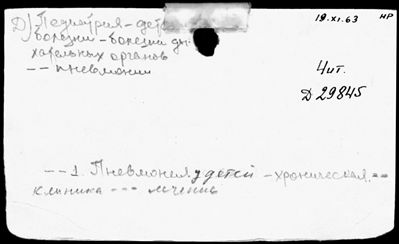 Д) Педиатрия - дет
болезни - болезни ды-
хательных органов
-- пневмонии
19.XI.63
НР
Чит.
Д 29845
-- 1. Пневмония у детей - хроническая. --
клиника --- лечение